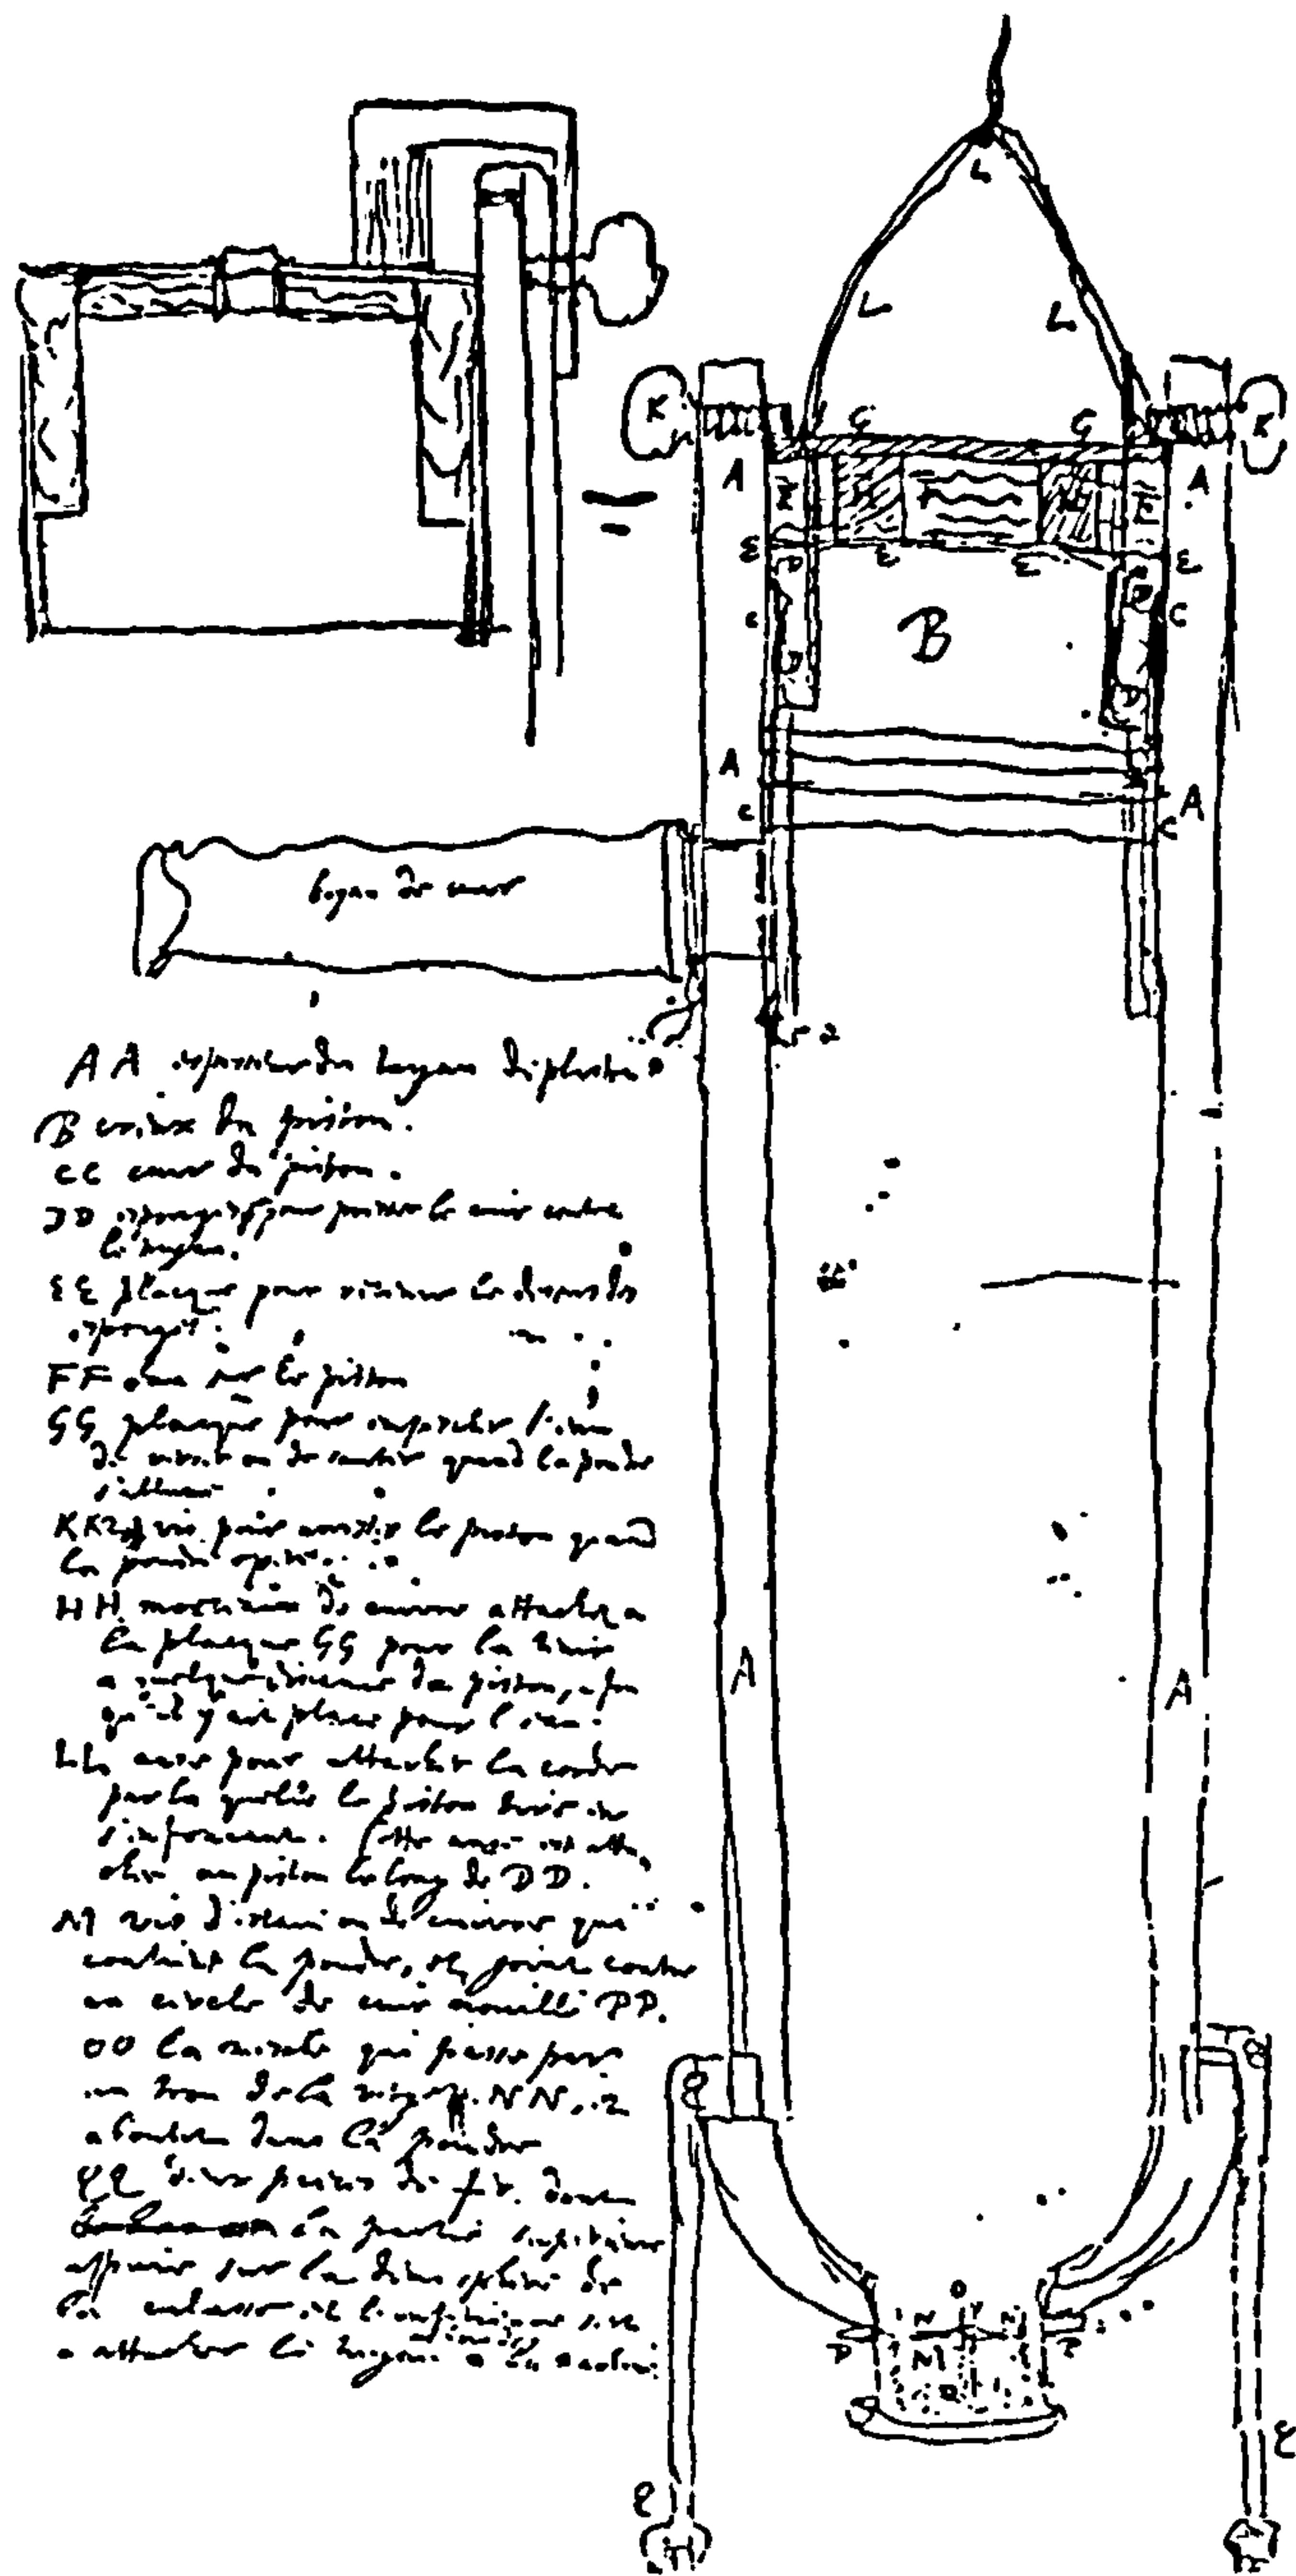 L
L L
K G G K
A A
F
E E E E
D D
c C
B
D D
A A
c C
boyau de cuir
AA espaisseur du tuyau de plastre
B creux du piston.
CC cuir du piston.
DD esponges pour presser le cuir contre
le tuyau.
EE placque pour retenir le dessus des
esponges.
FF eau sur le piston
GG placque pour empescher l'eau
de verser ou de sauter quand la poudre
s'allume
KK vis pour arrester le piston quand
la poudre
HH morceaux de cuivre attachez a
la placque GG pour la tenir
a quelque distance du piston, afin
qu'il y ait place pour l'eau.
LL anse pour attacher la corde
par la quelle le piston tire en
s'enfonçant. Cette anse est atta
chée au piston le long de DD.
M vis d'estain ou de cuivre qui
contient la poudre, et joint contre
un cercle de cuir mouillé PP.
OO la mesche qui passe par
un trou de la NN, et
aboutit dans la poudre
QQ deux pieces de fer dont
la partie superieure
appuie sur la demisphere de
la culasse et l'inferieure sert
a attacher le tuyau a la
A A
Q Q
O
N N
P M P
Q Q